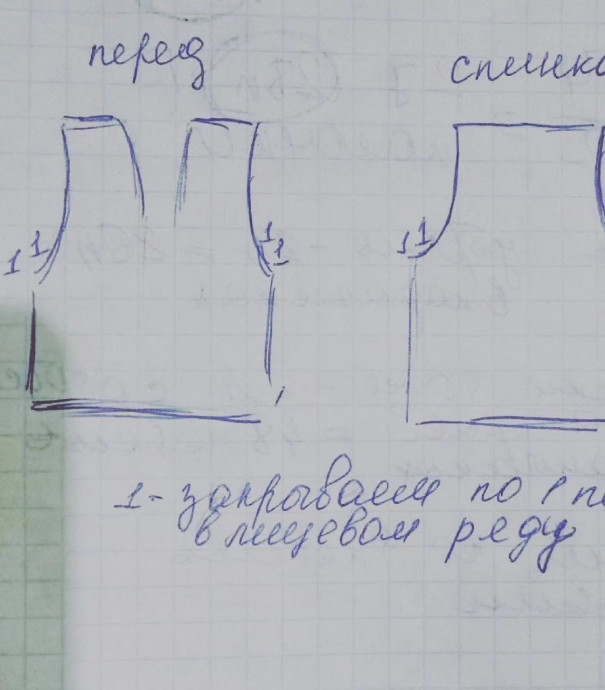 перед
спинка
1 1
1 1
1 1
1 - закрываем по 1 п
в лицевом ряду